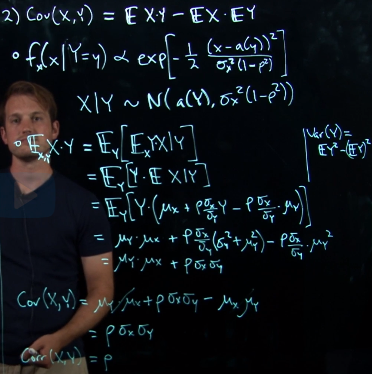 2) Cov(X,Y) = 𝔼 X·Y − 𝔼X · 𝔼Y
∘ fₓ(x|Y=y) ∝ exp[−1/2 (x−a(y))²/(σₓ²(1−ρ²))]
X|Y ~ N(a(Y), σₓ²(1−ρ²))
Var(Y) =
𝔼Y² − (𝔼Y)²
∘ 𝔼_{X,Y} X·Y = 𝔼_Y[𝔼_X YX|Y]
= 𝔼_Y[Y · 𝔼 X|Y]
= 𝔼_Y[Y·(μₓ + ρ σₓ/σ_y Y − ρ σₓ/σ_y · μ_y)]
= μ_y · μₓ + ρ σₓ/σ_y (σ_y² + μ_y²) − ρ σₓ/σ_y · μ_y²
= μ_y · μₓ + ρ σₓ σ_y
Cov(X,Y) = μ_y μₓ + ρ σₓ σ_y − μₓ μ_y
= ρ σₓ σ_y
Corr(X,Y) = ρ